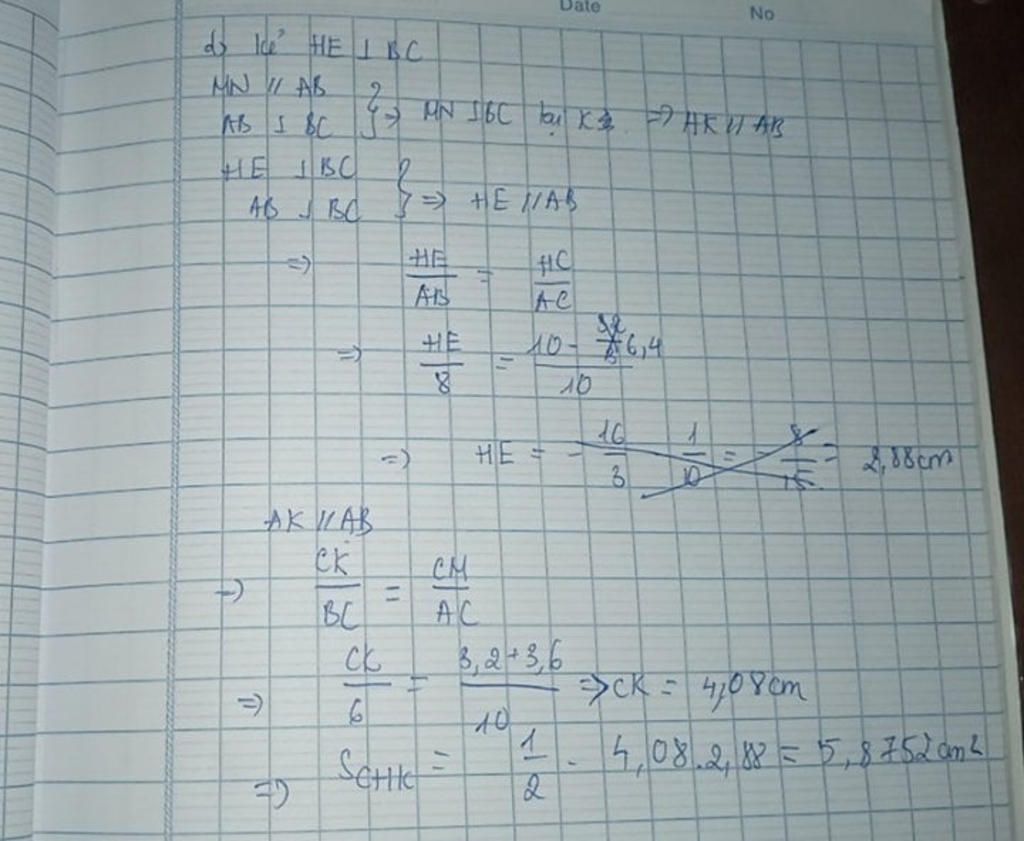 Date No
d) Kẻ HE ⊥ BC
MN // AB
AB ⊥ BC } => MN ⊥ BC tại K => AK // AB
HE ⊥ BC
AB ⊥ BC } => HE // AB
=> HE/AB = HC/AC
=> HE/8 = (10 - 6,4)/10
=> HE = 2,88cm
AK // AB
=> CK/BC = CM/AC
=> CK/6 = (3,2+3,6)/10 => CK = 4,08cm
=> S_CHK = 1/2 . 4,08.2,88 = 5,8752cm²